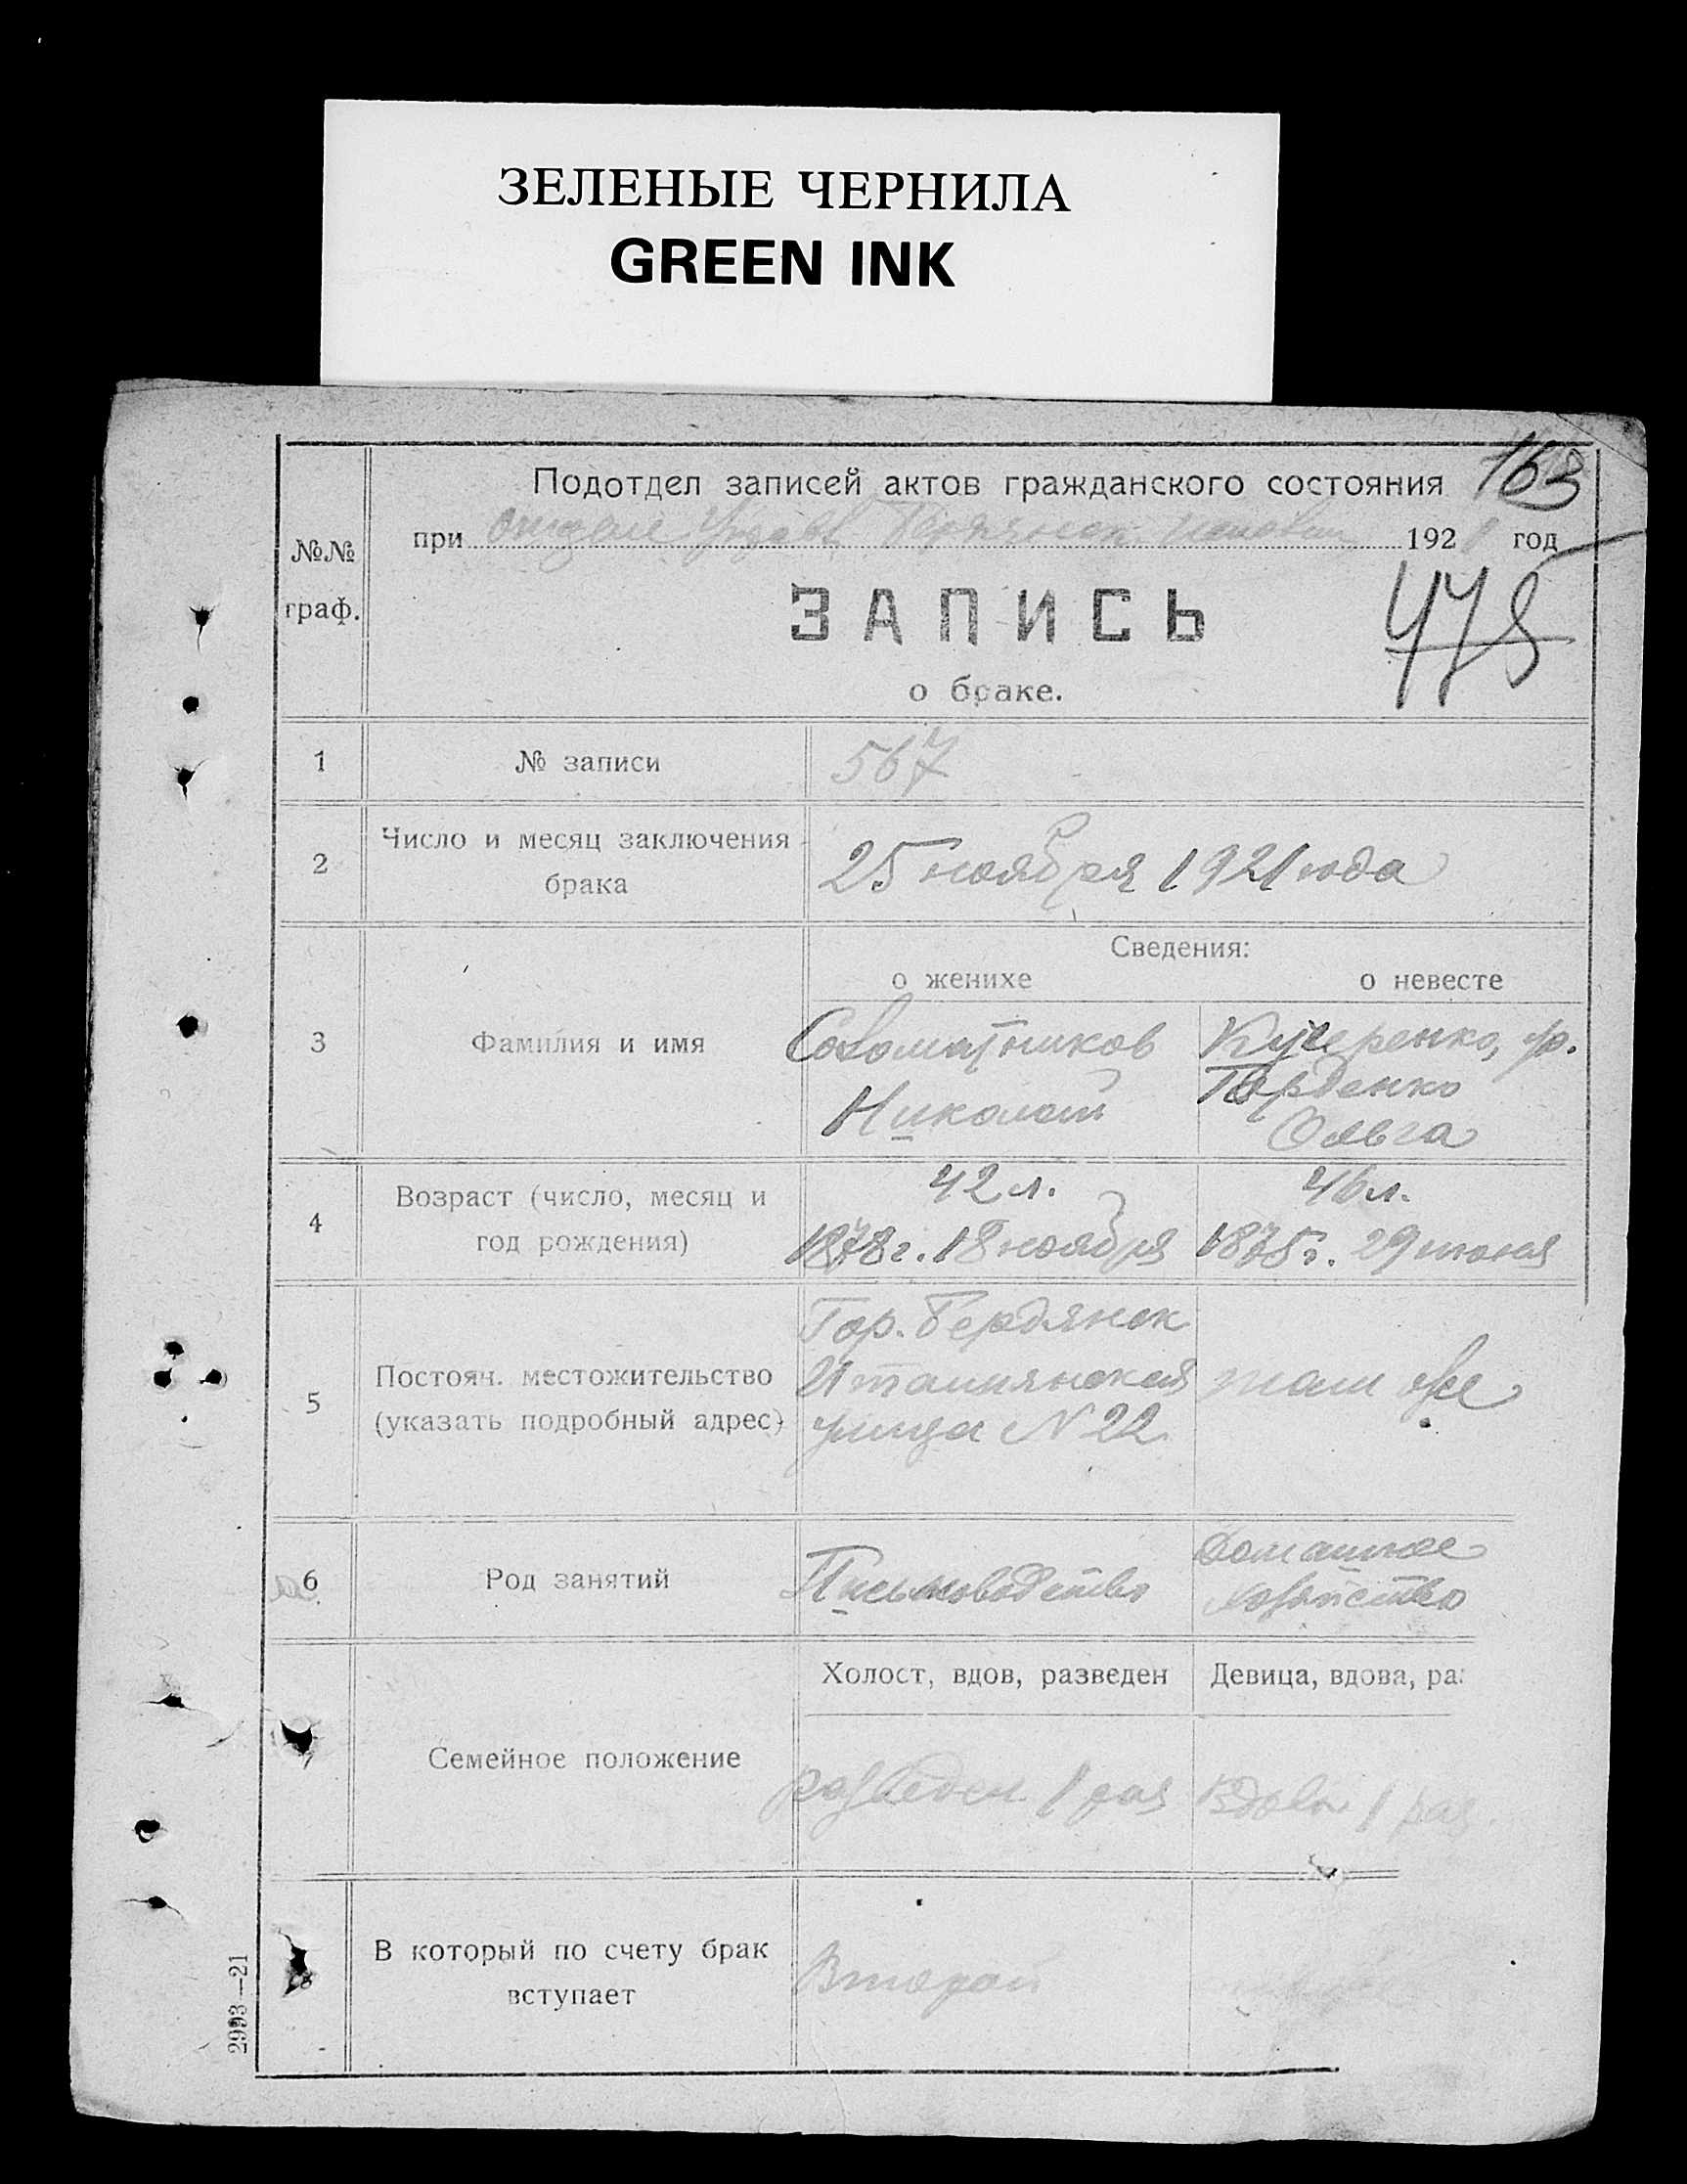 ЗЕЛЕНЫЕ ЧЕРНИЛА
GREEN INK
163
Подотдел записей актов гражданского состояния
при отделе Управ. Бердянск. 1921 год
№№
граф.
ЗАПИСЬ
о браке.
475
1 № записи 567
2 Число и месяц заключения
брака
25 ноября 1921 года
Сведения:
о женихе о невесте
3 Фамилия и имя
Соломатников
Николай
Кучеренко, ур.
Гарденко
Ольга
4 Возраст (число, месяц и
год рождения)
42 л.
1878 г. 18 ноября
46 л.
1875 г. 29 июня
5 Постоян. местожительство
(указать подробный адрес)
Гор. Бердянск
Итальянская
улица N 22
там же
6 Род занятий
Письмоводство
Домашнее
хозяйство
7 Семейное положение
Холост, вдов, разведен
Девица, вдова, раз
разведен 1 раз
вдова 1 раз
8 В который по счету брак
вступает
Второй
2993—21